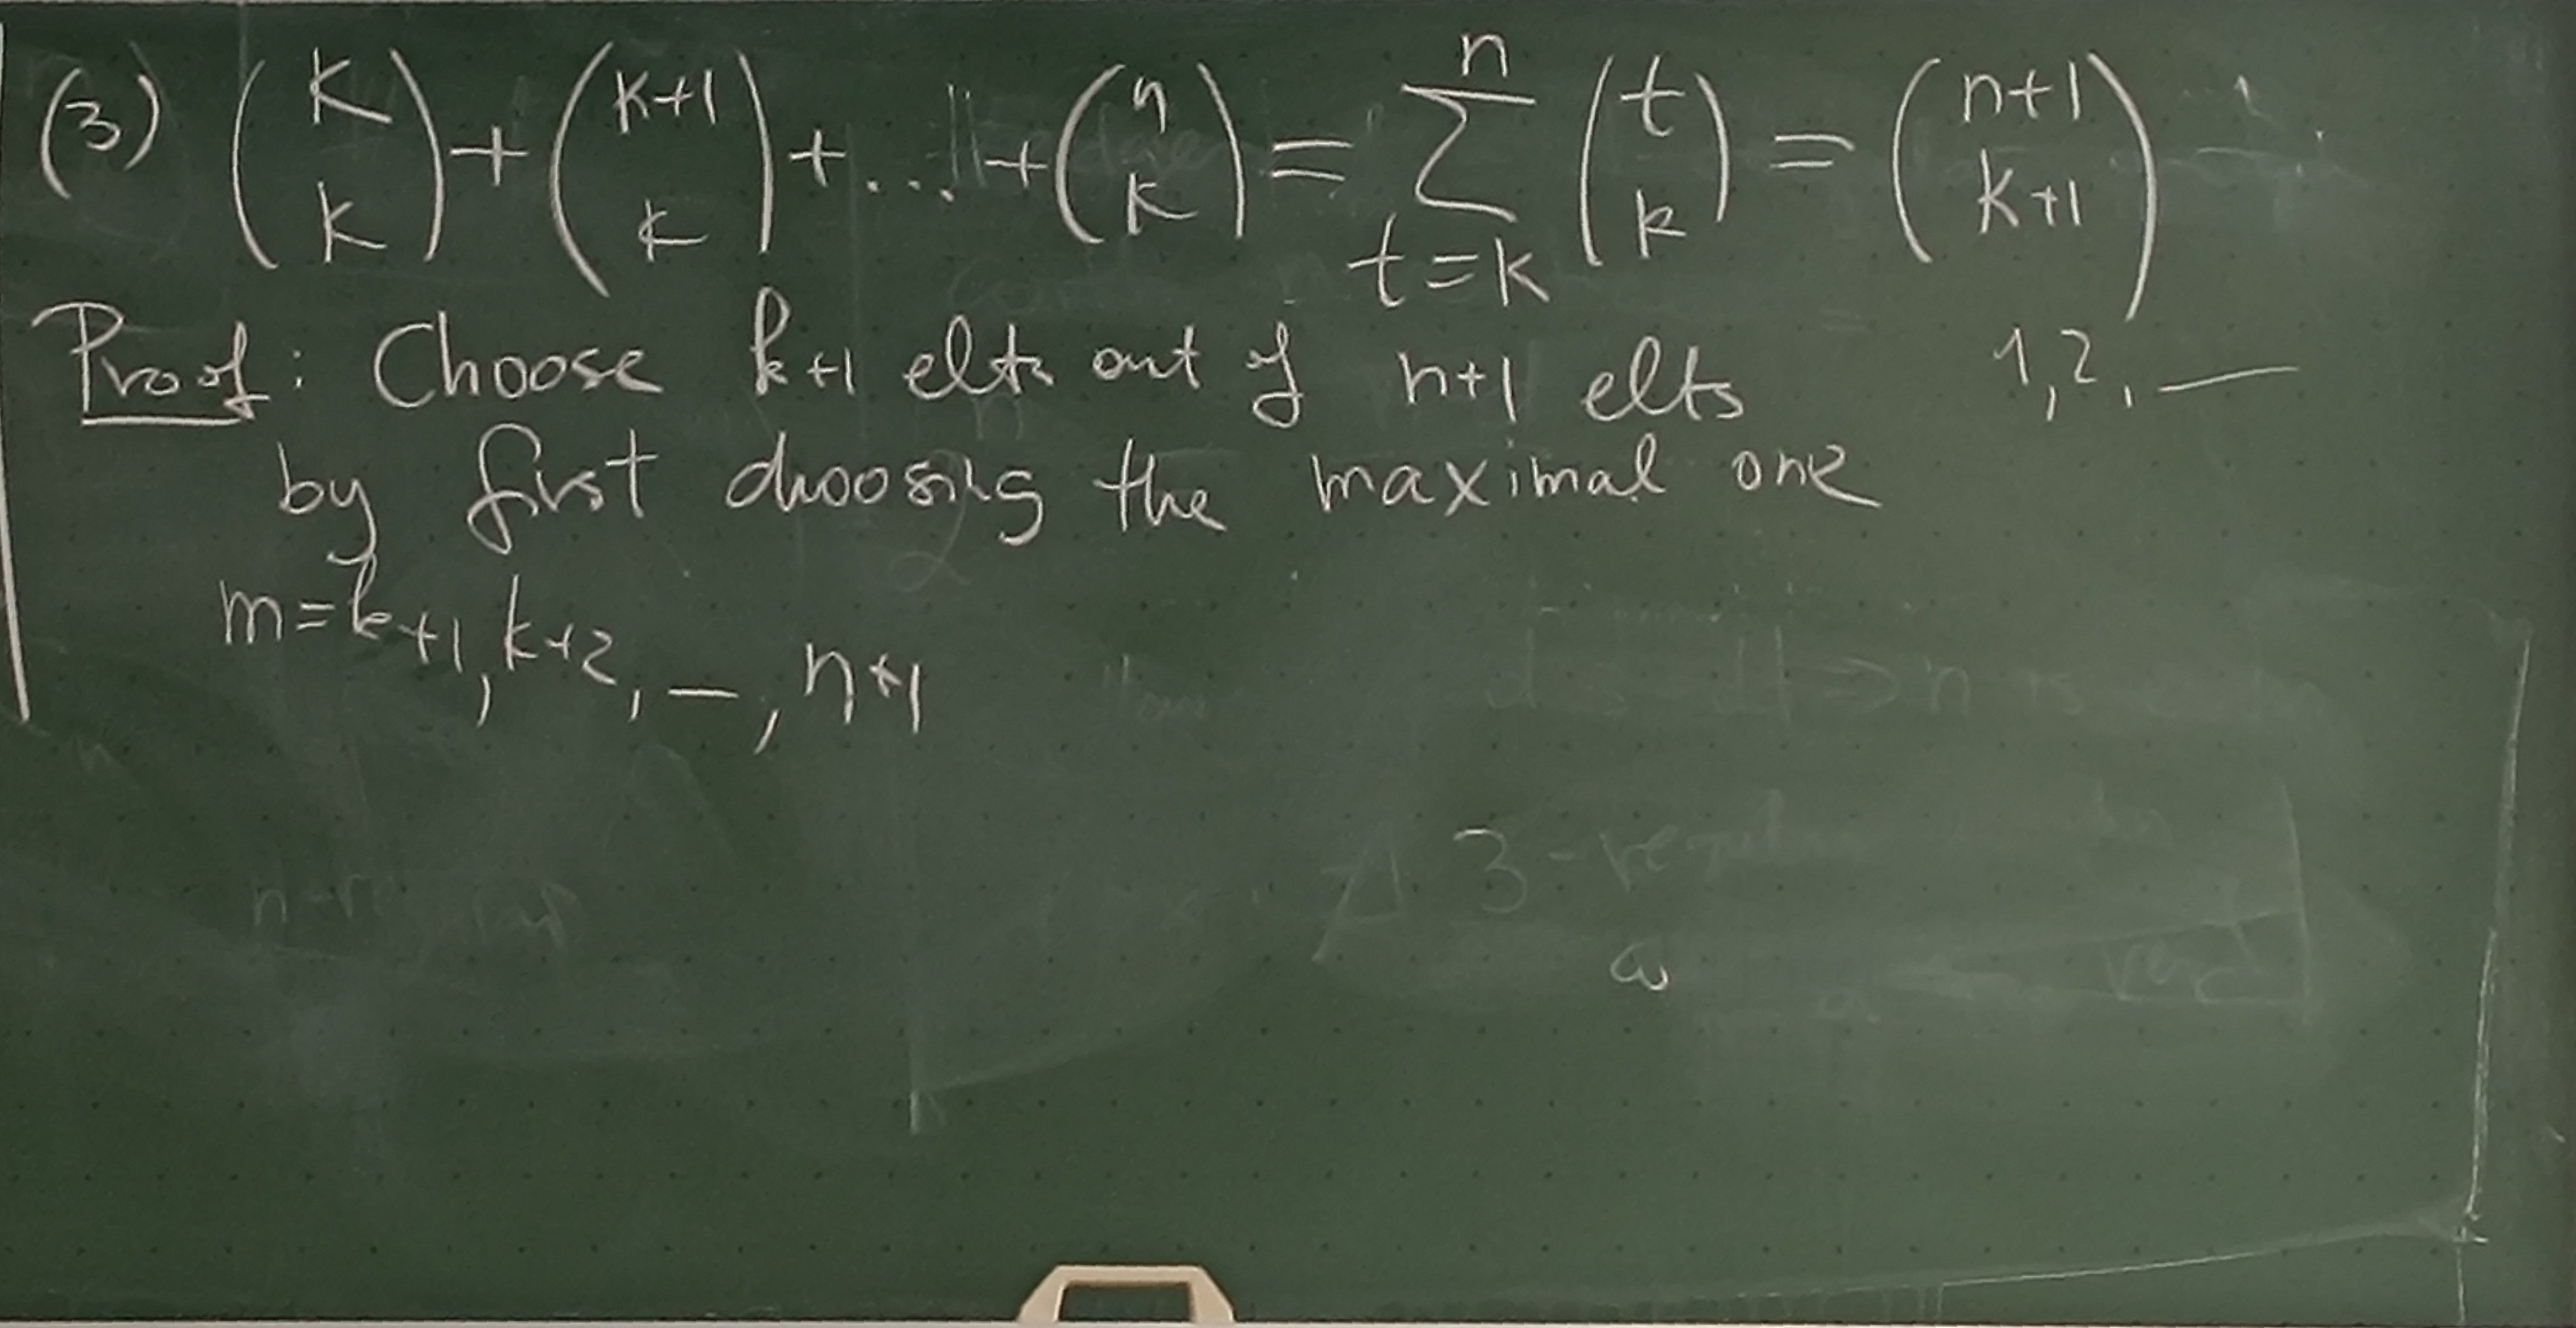 (3) (k k) + (k+1 k) + ... + (n k) = n ∑ t=k (t k) = (n+1 k+1)
Proof: Choose k+1 elts out of n+1 elts 1,2, —
by first choosing the maximal one
m=k+1, k+2, –, n+1
A 3-